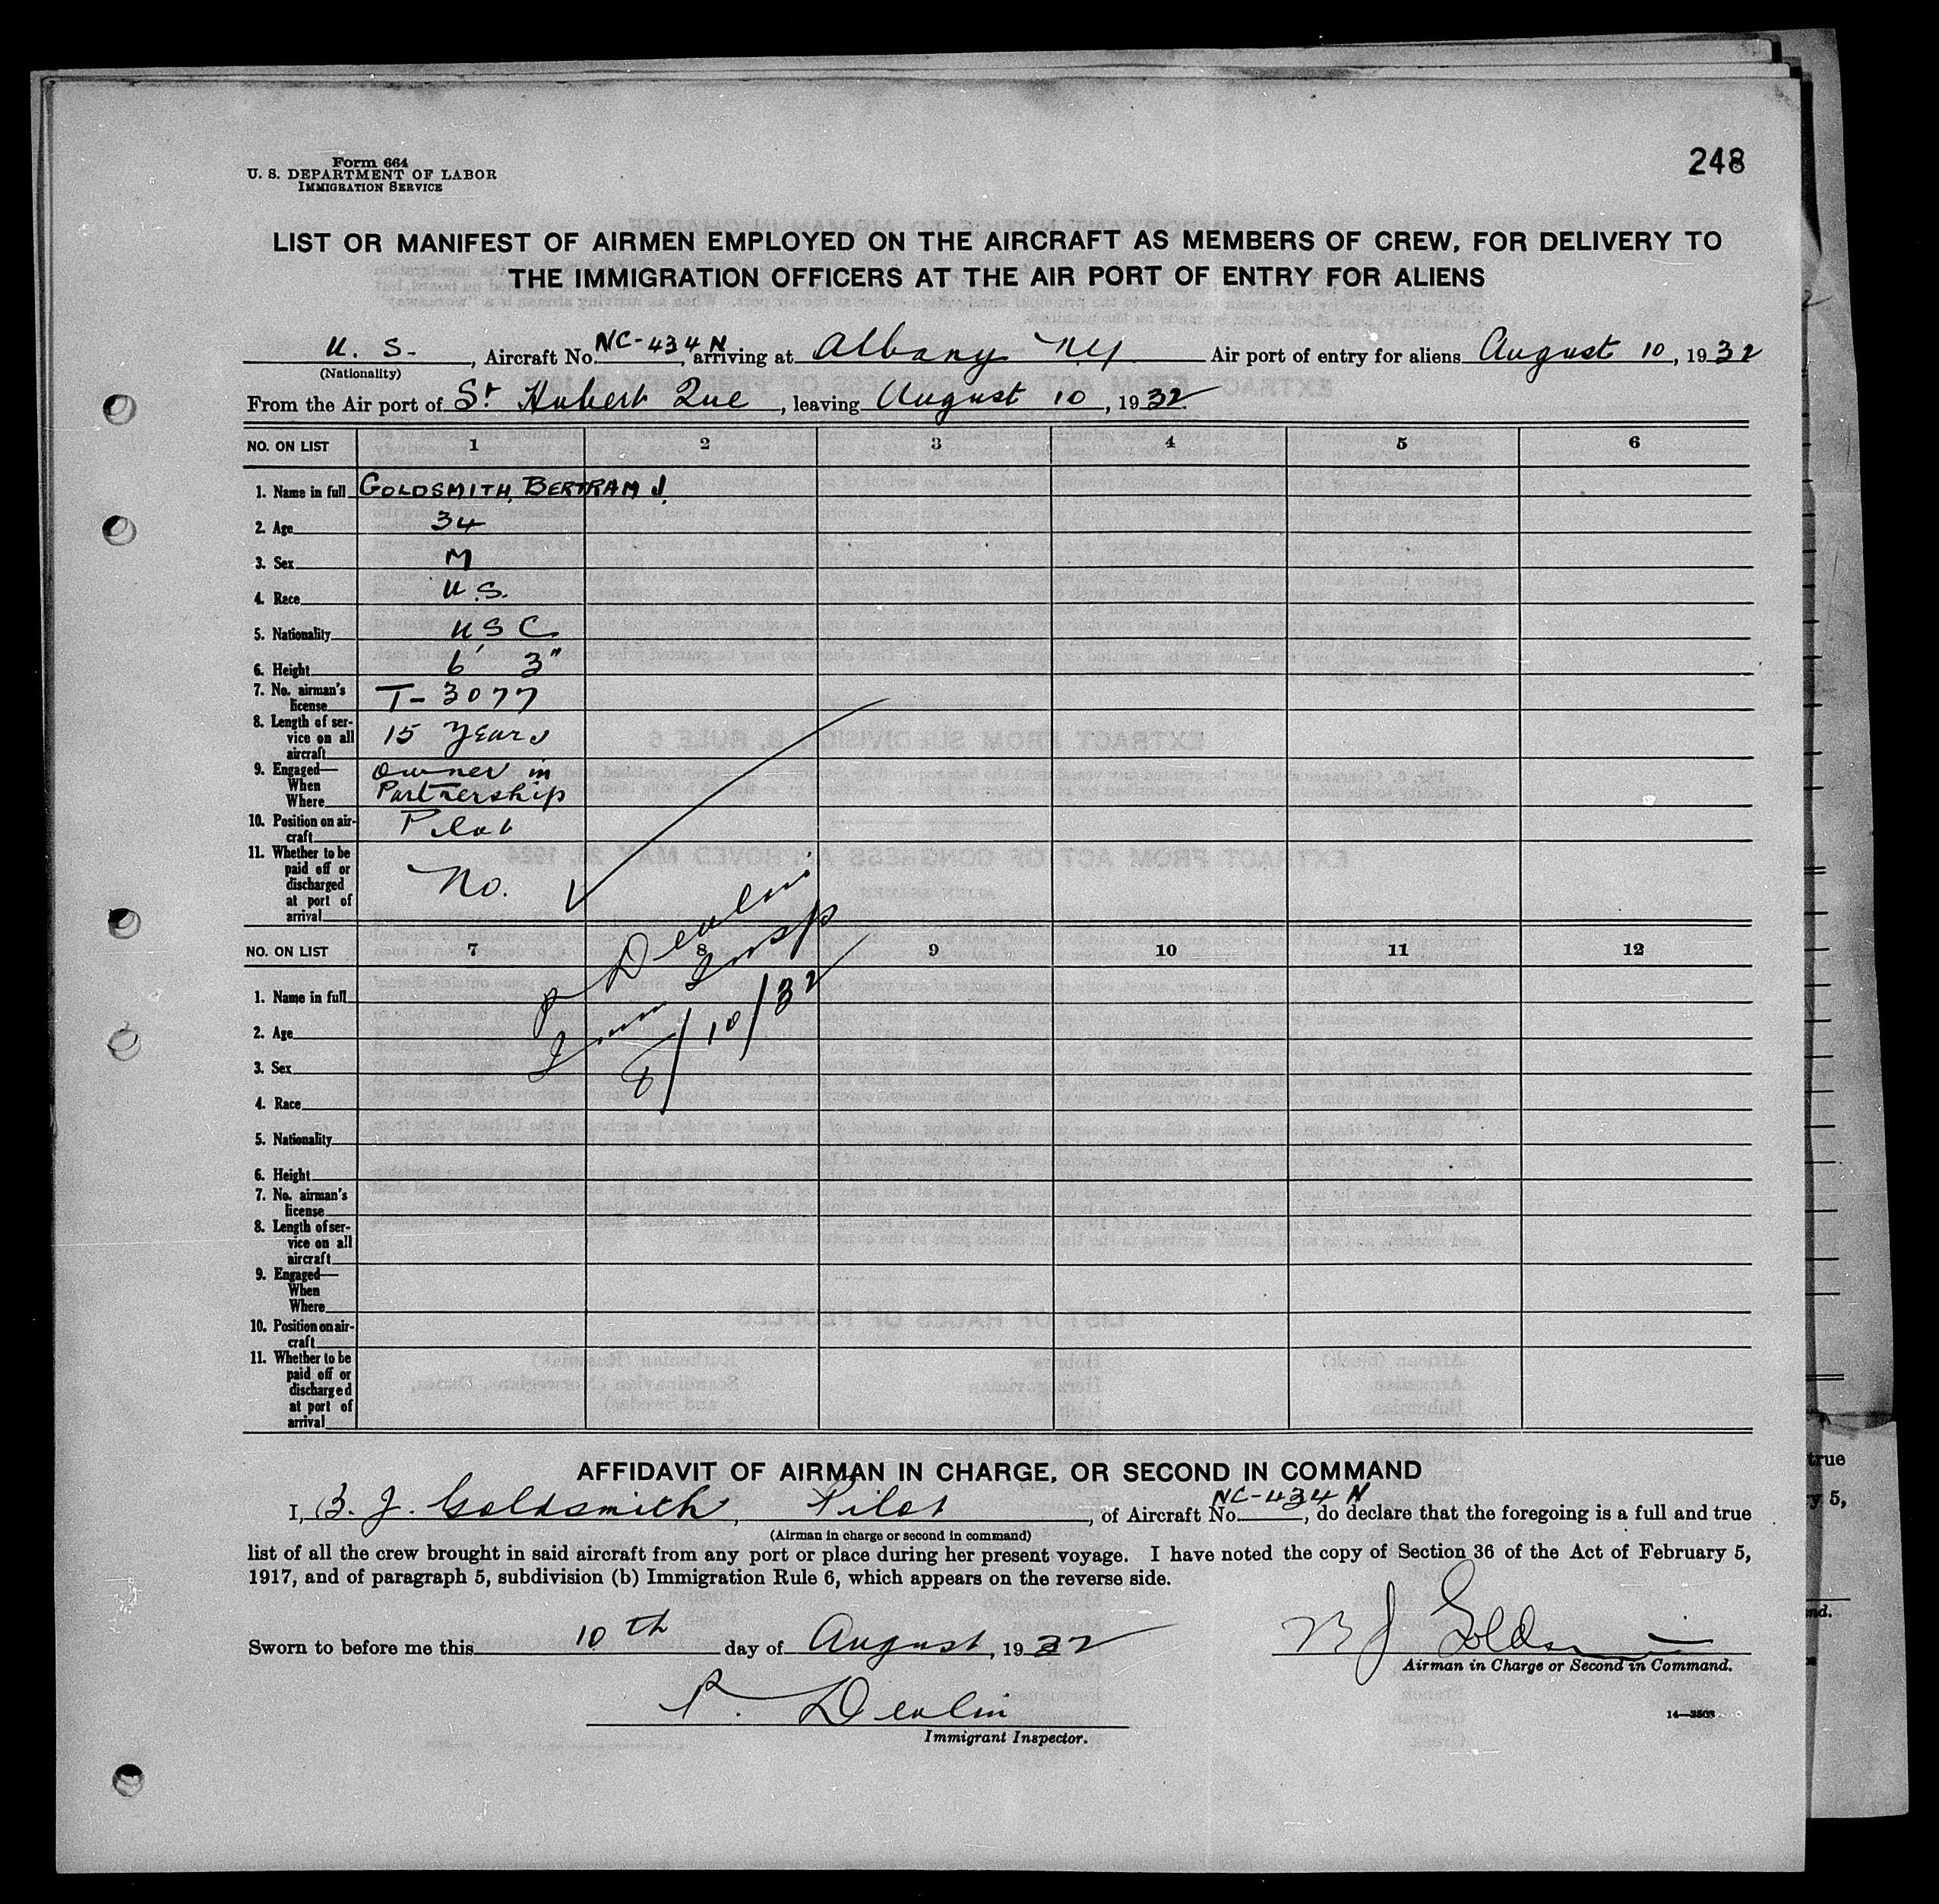 248
Form 664
U. S. DEPARTMENT OF LABOR
IMMIGRATION SERVICE
LIST OR MANIFEST OF AIRMEN EMPLOYED ON THE AIRCRAFT AS MEMBERS OF CREW, FOR DELIVERY TO
THE IMMIGRATION OFFICERS AT THE AIR PORT OF ENTRY FOR ALIENS
U. S. , Aircraft No. NC-434N, arriving at Albany NY Air port of entry for aliens August 10, 1932
(Nationality)
From the Air port of St Hubert Que , leaving August 10, 1932
NO. ON LIST 1 2 3 4 5 6
1. Name in full GOLDSMITH, BERTRAM J.
2. Age 34
3. Sex M
4. Race U.S.
5. Nationality USC
6. Height 6' 3"
7. No. airman's
license T-3077
8. Length of ser-
vice on all 15 Years
aircraft
9. Engaged— owner in
When Partnership
Where
10. Position on air- Pilot
craft
11. Whether to be
paid off or
discharged No.
at port of
arrival
P Devlin
Imm Insp
8/10/32
NO. ON LIST 7 8 9 10 11 12
1. Name in full
2. Age
3. Sex
4. Race
5. Nationality
6. Height
7. No. airman's
license
8. Length of ser-
vice on all
aircraft
9. Engaged—
When
Where
10. Position on air-
craft
11. Whether to be
paid off or
discharged
at port of
arrival
AFFIDAVIT OF AIRMAN IN CHARGE, OR SECOND IN COMMAND
I, B. J. Goldsmith, Pilot , of Aircraft No. NC-434N, do declare that the foregoing is a full and true
(Airman in charge or second in command)
list of all the crew brought in said aircraft from any port or place during her present voyage. I have noted the copy of Section 36 of the Act of February 5,
1917, and of paragraph 5, subdivision (b) Immigration Rule 6, which appears on the reverse side.
Sworn to before me this 10th day of August, 1932
B J Goldsmith
Airman in Charge or Second in Command.
P. Devlin
Immigrant Inspector.
14—3503
true
y 5,
nd.